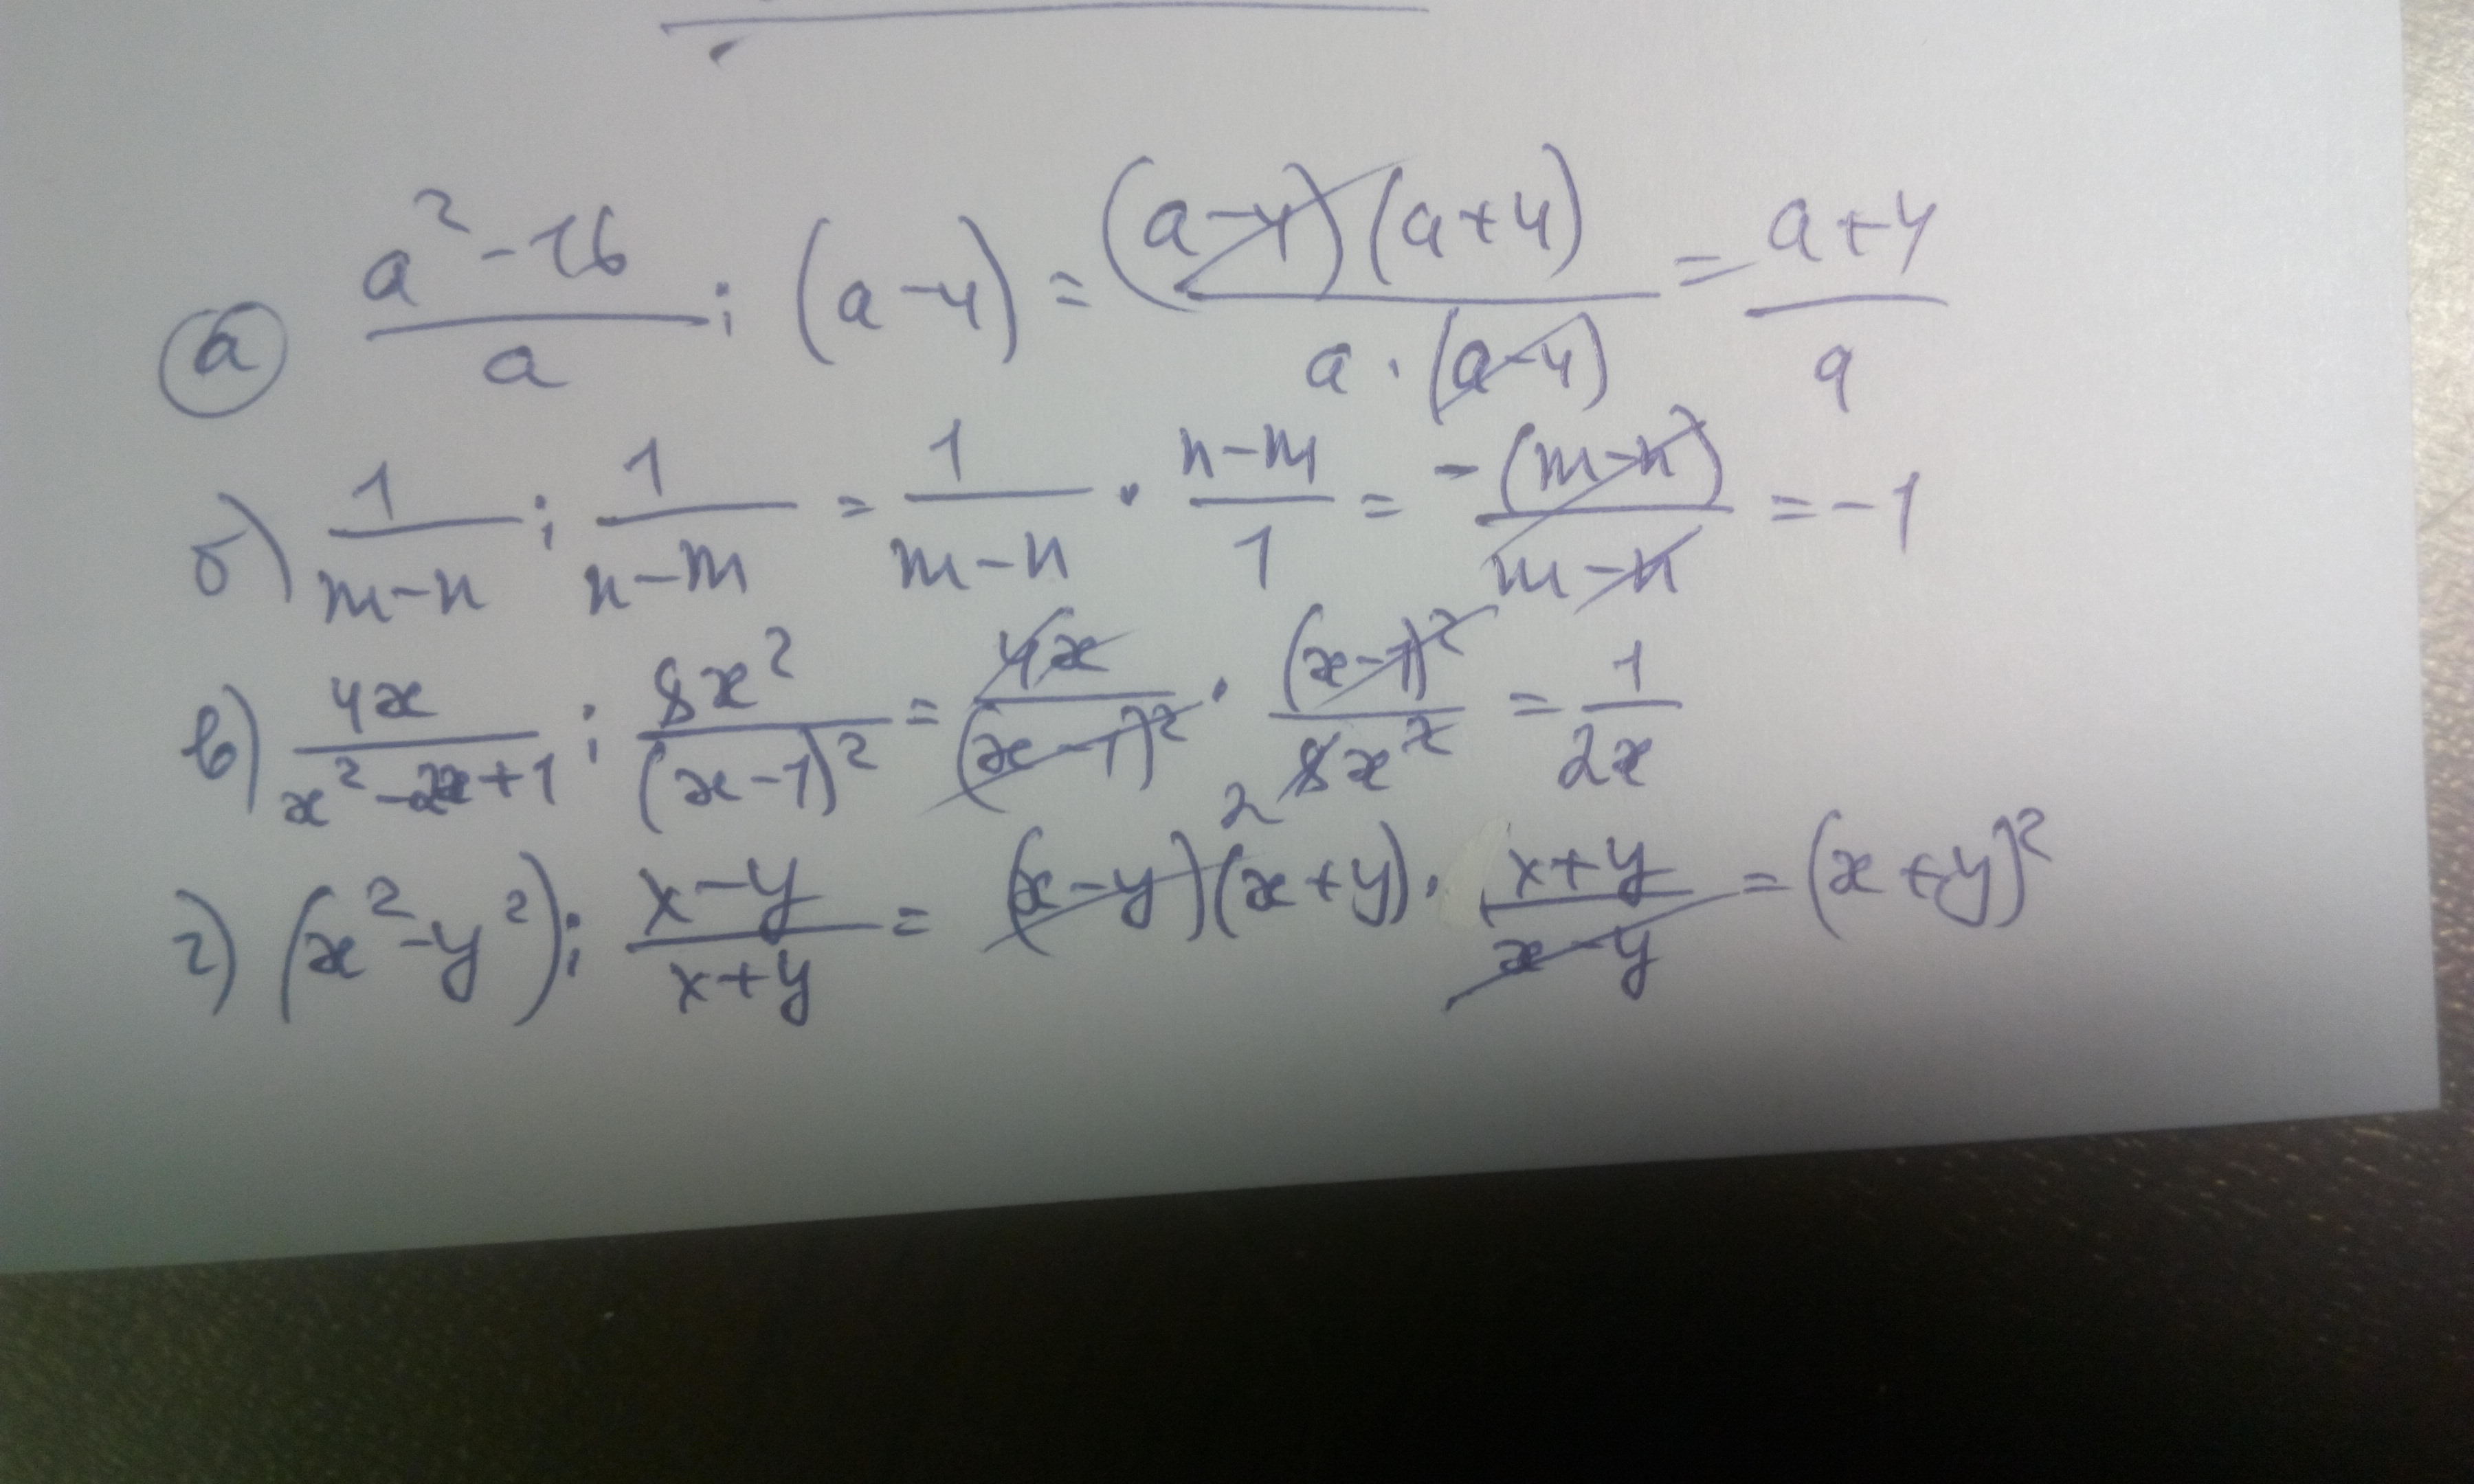 а) (a² - 16)/a : (a - 4) = ((a - 4)(a + 4))/(a · (a - 4)) = (a + 4)/a
б) 1/(m - n) : 1/(n - m) = 1/(m - n) · (n - m)/1 = -(m - n)/(m - n) = -1
в) 4x/(x² - 2x + 1) : 8x²/(x - 1)² = 4x/(x - 1)² · (x - 1)²/(8x²) 2 = 1/(2x)
г) (x² - y²) : (x - y)/(x + y) = (x - y)(x + y) · (x + y)/(x - y) = (x + y)²